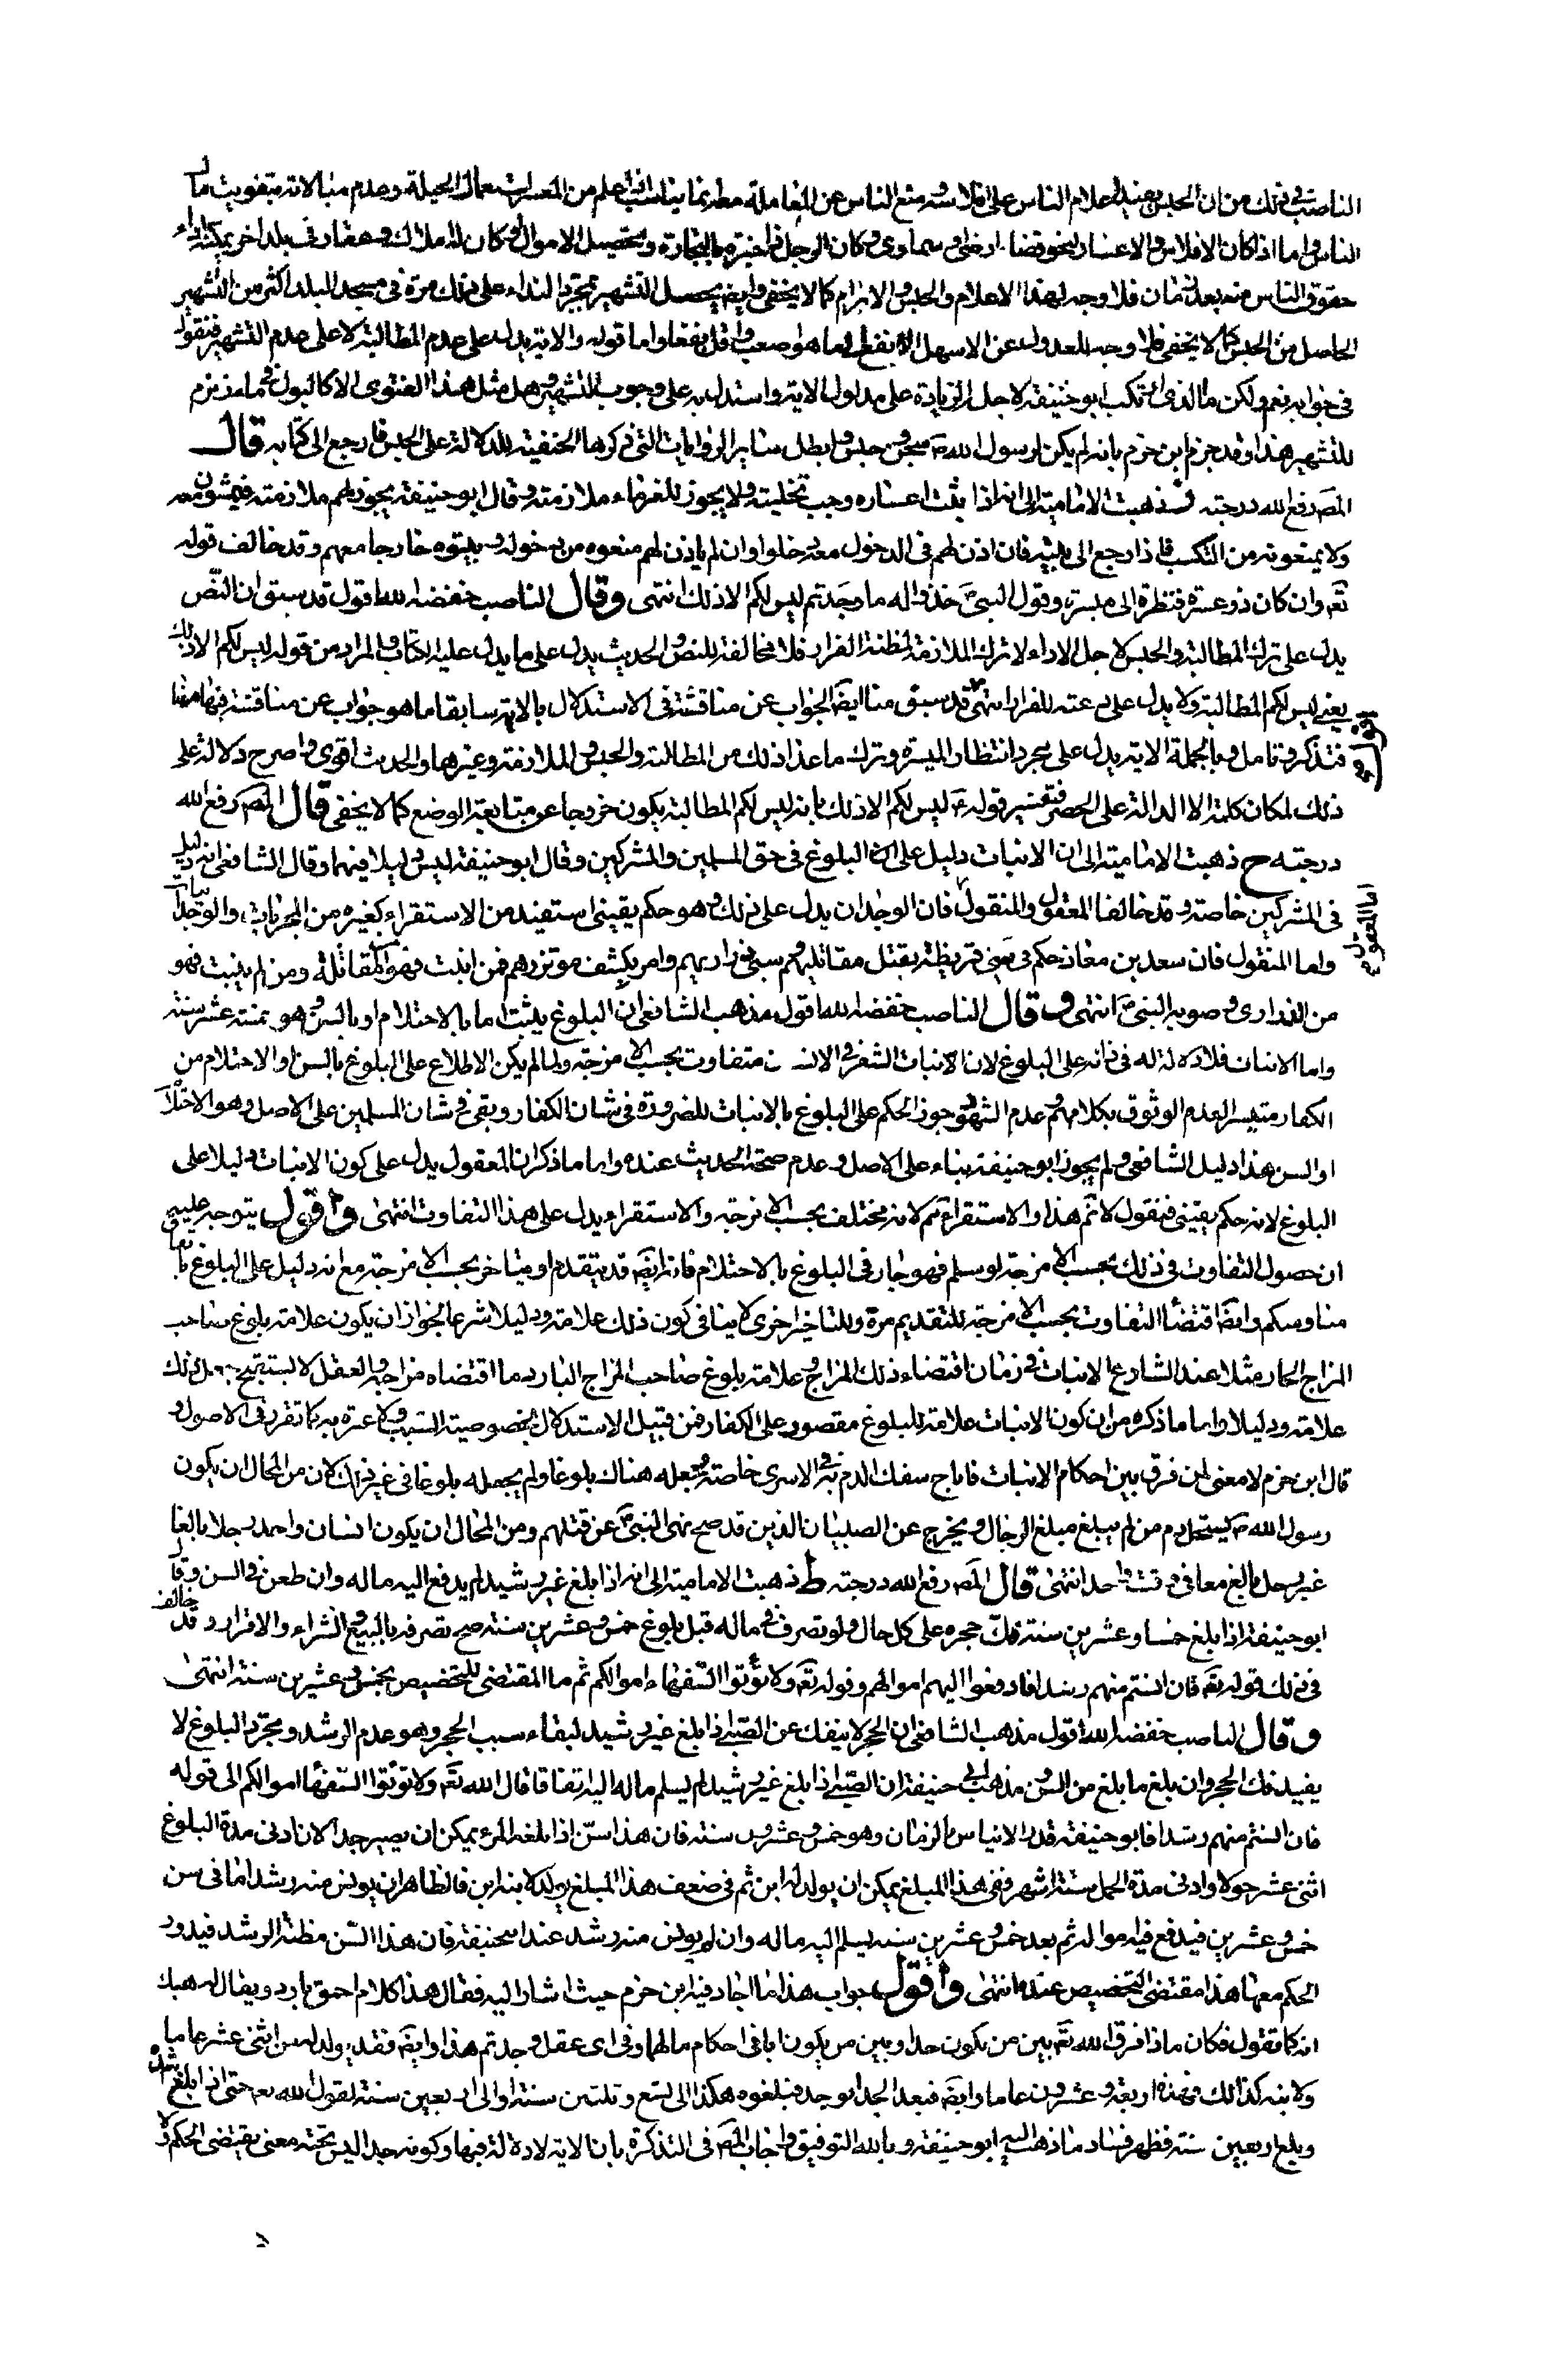 الناصب في ذلك من ان الحبس يفيد اعلام الناس على افلاسه ومنع الناس عن المعاملة معه انما يناسب اذا علم من المعسر استعمال الحيلة وعدم مبالاته بتفويت مال
الناس واما اذا كان الافلاس والاعسار لنحو قضاء ارضى وسماوى وكان الرجل ذا خبرة بالتجارة وتحصيل الاموال وكان له ملاك وعقار في بلد اخر يمكنه اداء
حقوق الناس منه بعد زمان فلا وجه لهذا الاعلام والحبس والابرام كما لا يخفى وايضا يحصل التشهير بمجرد النداء على ذلك مرة في مسجد البلد اكثر من التشهير
الحاصل من الحبس كما لا يخفى فلا وجه للعدول عن الاسهل الانفع الى ما هو اصعب واقل نفعا واما قوله والاية يدل على عدم المطالبة لا على عدم التشهير فنقول
في جوابه نعم ولكن ما الذى ارتكب ابو حنيفة لاجل الزيادة على مدلول الاية واستدل به على وجوب التشهير وهل مثل هذا الفتوى الا كالبول في ماء زمزم
للتشهير هذا وقد جزم ابن حزم بانه لم يكن لرسول الله ص سجن وحبس وابطل ساير الروايات التى ذكرها الحنفية للدلالة على الحبس فارجع الى كتابه قال
المص رفع الله درجته ز ذهبت الامامية الى انه اذا ثبت اعساره وجب تخليته ولا يجوز للغرماء ملازمته وقال ابو حنيفة يجوز لهم ملازمته فيمشون معه
ولا يمنعونه من التكسب فاذا رجع الى بيته فان اذن لهم في الدخول معه دخلوا وان لم ياذن لهم منعوه من دخوله وبيتوه خارجا معهم وقد خالف قوله
تعه وان كان ذو عسرة فنظرة الى ميسرة وقول النبي ص خذوا له ما وجدتم ليس لكم الا ذلك انتهى وقال الناصب خفضه الله اقول قد سبق ان النص
يدل على ترك المطالبة والحبس لاجل الاداء لا ترك الملازمة لمظنة الفرار فلا مخالفة للنص والحديث يدل على ما يدل عليه الكتاب والمراد من قوله ليس لكم الا ذلك
يعنى ليس لكم المطالبة ولا يدل على دعته للفرار انتهى وقد سبق منا ايضا الجواب عن مناقشته في الاستدلال بالاية سابقا ما هو جواب عن مناقشته فيها هنا
فتذكر وتامل وبالجملة الاية يدل على مجرد انتظار اليسرة وترك ما عدا ذلك من المطالبة والحبس والملازمة وغيرها والحديث اقوى واصرح دلالة على
ذلك لمكان كلمة الا الدالة على الحصر فتفسير قوله ع ليس لكم الا ذلك بانه ليس لكم المطالبة يكون خروجا عن متابعة الوضع كما لا يخفى قال المص رفع الله
درجته ح ذهبت الامامية الى ان الانبات دليل على البلوغ في حق المسلمين والمشركين وقال ابو حنيفة ليس دليلا فيهما وقال الشافعى انه دليل
في المشركين خاصة وقد خالفا المعقول والمنقول فان الوجدان يدل على ذلك وهو حكم يقينى استفيد من الاستقراء كغيره من المجربات والوجدانيات
اما المعقول
واما المنقول فان سعد بن معاذ حكم في بنى قريظة بقتل مقاتليهم وسبى ذراريهم وامر بكشف موتزرهم فمن انبت فهو المقاتلة ومن لم ينبت فهو
من الذرارى وصوبه النبي ص انتهى وقال الناصب خفضه الله اقول مذهب الشافعى ان البلوغ يثبت اما بالاحتلام او بالسن وهو خمسة عشر سنة
واما الانبات فلا دلالة له في ذاته على البلوغ لان الانبات الشعر في الانسان متفاوت بحسب الامزجة ولما لم يكن الاطلاع على البلوغ بالسن او الاحتلام من
الكفار متيسرا لعدم الوثوق بكلامهم وعدم الشهود جوز الحكم على البلوغ بالانبات للضرورة في شان الكفار وبقى في شان المسلمين على الاصل وهو الاحتلام
او السن هذا دليل الشافعى ولم يجوز ابو حنيفة بناء على الاصل وعدم صحة الحديث عنده واما ما ذكر ان المعقول يدل على كون الانبات دليلا على
البلوغ لانه حكم يقينى فنقول لا ثم هذا والاستقراء ثم لانه مختلف بحسب الامزجة والاستقراء يدل على هذا التفاوت انتهى واقول يتوجه عليه
ان حصول التفاوت في ذلك بحسب الامزجة لو سلم فهو جار في البلوغ بالاحتلام فانه ايضا قد يتقدم او يتاخر بحسب الامزجة مع انه دليل على البلوغ باتفاق
منا ومنكم وايضا اقتضاء التفاوت بحسب الامزجة للتقديم مرة وللتاخير اخرى لا ينافى كون ذلك علامة ودليلا شرعا لجواز ان يكون علامة بلوغ صاحب
المزاج الحار مثلا عند الشارع الانبات في زمان اقتضاء ذلك المزاج وعلامة بلوغ صاحب المزاج البارد ما اقتضاه مزاجه والعقل لا يستقبح جعل ذلك
علامة ودليلا واما ما ذكره من ان كون الانبات علامة للبلوغ مقصور على الكفار فمن قبيل الاستدلال بخصوصية السبب ولا عبرة به كما تقرر في الاصول و
قال ابن حزم لا معنى لمن فرق بين احكام الانبات فاباح سفك الدم به في الاسرى خاصة وجعله هناك بلوغا ولم يجعله بلوغا في غير ذلك لان من المحال ان يكون
رسول الله ص يستحل دم من لم يبلغ مبلغ الرجال ويخرج عن الصبيان الذين قد صح نهى النبي ص عن قتلهم ومن المحال ان يكون انسان واحد رجلا بالغا
غير رجل بالغ معا في وقت واحد انتهى قال المص رفع الله درجته ط ذهبت الامامية الى انه اذا بلغ غير رشيد لم يدفع اليه ماله وان طعن في السن وقال
ابو حنيفة اذا بلغ خمسا وعشرين سنة فك حجره على كل حال ولو تصرف في ماله قبل بلوغ خمس وعشرين سنة صح تصرفه بالبيع والشراء والاقرار وقد خالف
في ذلك قوله تعه فان انستم منهم رشدا فادفعوا اليهم اموالهم وقوله تعه ولا تؤتوا السفهاء اموالكم ثم ما المقتضى للتخصيص بخمس وعشرين سنة انتهى
وقال الناصب خفضه الله اقول مذهب الشافعى ان الحجر لا ينفك عن الصبى اذا بلغ غير رشيد لبقاء سبب الحجر وهو عدم الرشد ومجرد البلوغ لا
يفيد فك الحجر وان بلغ ما بلغ من السن ومذهب ابى حنيفة ان الصبى اذا بلغ غير رشيد لم يسلم ماله اليه اتفاقا قال الله تعه ولا تؤتوا السفهاء اموالكم الى قوله
فان انستم منهم رشدا فابو حنيفة قدر الايناس بالزمان وهو خمس وعشرون سنة فان هذا سن اذا بلغه المرء يمكن ان يصير جدا لان ادنى مدة البلوغ
اثنى عشر حولا وادنى مدة الحمل ستة اشهر ففى هذا المبلغ يمكن ان يولد له ابن ثم في ضعف هذا المبلغ يولد لابنه ابن فالظاهر ان يونس منه رشدا ما في سن
خمس وعشرين فيدفع فيه امواله ثم بعد خمس وعشرين سنه يسلم اليه ماله وان لم يونس منه رشد عند ابى حنيفة فان هذا السن مظنة الرشد فيدور
الحكم معها هذا مقتضى التخصيص عنده انتهى واقول جواب هذا ما اجاد فيه ابن حزم حيث اشار اليه فقال هذا كلام احمق بارد ويقال له هبك
انه كما تقول فكان ماذا فرق الله تعه بين من يكون جدا وبين من يكون ابا في احكام مالهما وفى اى عقل وجدتم هذا وايضا فقد يولد له من اثنى عشر عاما
ولابنه كذلك فهذه اربعة وعشرون عاما وايضا فبعد الجد ابو جد فبلغوه هكذا الى تسع وثلثين سنة او الى اربعين سنة لقول الله تعه حتى اذا بلغ اشده
وبلغ اربعين سنة فظهر فساد ما ذهب اليه ابو حنيفة وبالله التوفيق واجاب المص في التذكرة بان الاية لا دلالة فيها وكونه جدا ليس تحته معنى يقتضى الحكم ولا